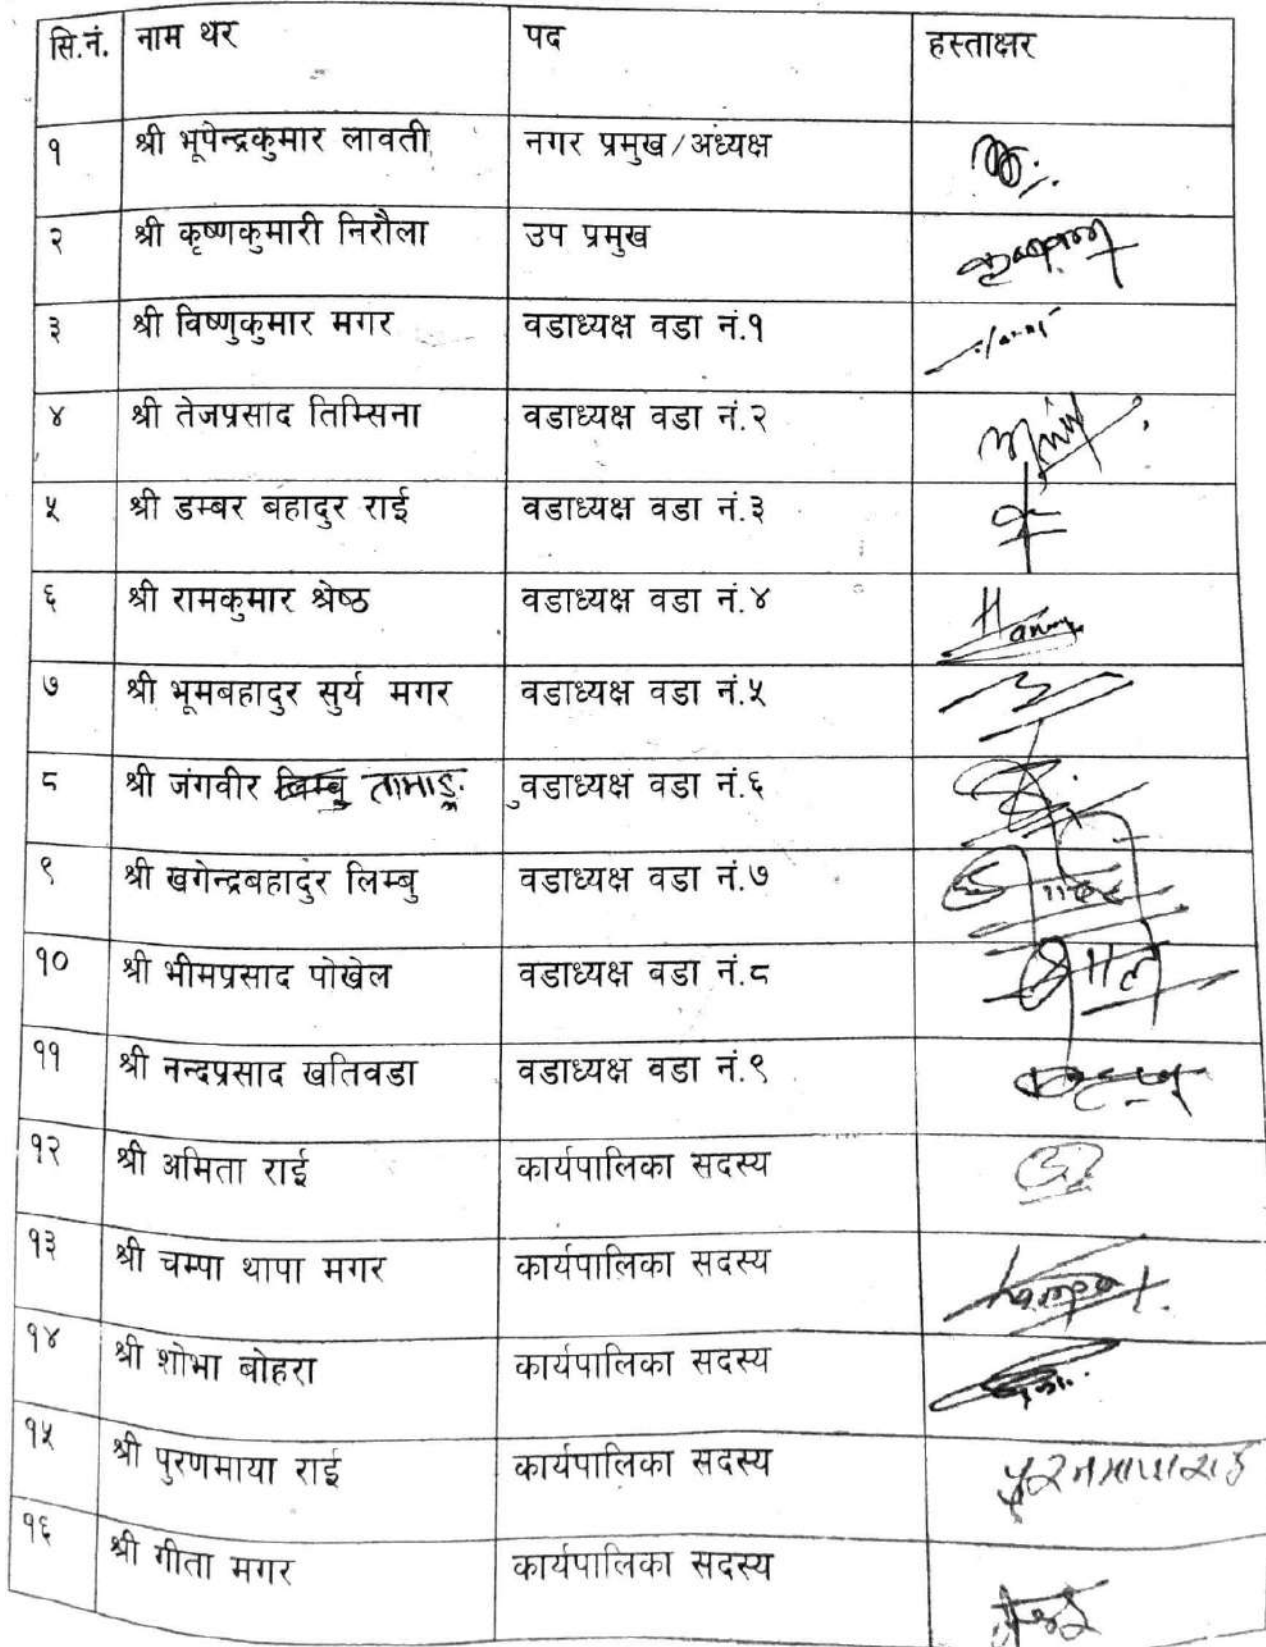 सि.नं. नाम थर पद हस्ताक्षर
१ श्री भूपेन्द्रकुमार लावती नगर प्रमुख/अध्यक्ष
२ श्री कृष्णकुमारी निरौला उप प्रमुख
३ श्री विष्णुकुमार मगर वडाध्यक्ष वडा नं.१
४ श्री तेजप्रसाद तिम्सिना वडाध्यक्ष वडा नं.२
५ श्री डम्बर बहादुर राई वडाध्यक्ष वडा नं.३
६ श्री रामकुमार श्रेष्ठ वडाध्यक्ष वडा नं.४
७ श्री भूमबहादुर सुर्य मगर वडाध्यक्ष वडा नं.५
८ श्री जंगवीर लिम्बु तामाङ वडाध्यक्ष वडा नं.६
९ श्री खगेन्द्रबहादुर लिम्बु वडाध्यक्ष वडा नं.७
१० श्री भीमप्रसाद पोखेल वडाध्यक्ष वडा नं.८
११ श्री नन्दप्रसाद खतिवडा वडाध्यक्ष वडा नं.९
१२ श्री अमिता राई कार्यपालिका सदस्य
१३ श्री चम्पा थापा मगर कार्यपालिका सदस्य
१४ श्री शोभा बोहरा कार्यपालिका सदस्य
१५ श्री पुरणमाया राई कार्यपालिका सदस्य पुरनमाया राई
१६ श्री गीता मगर कार्यपालिका सदस्य